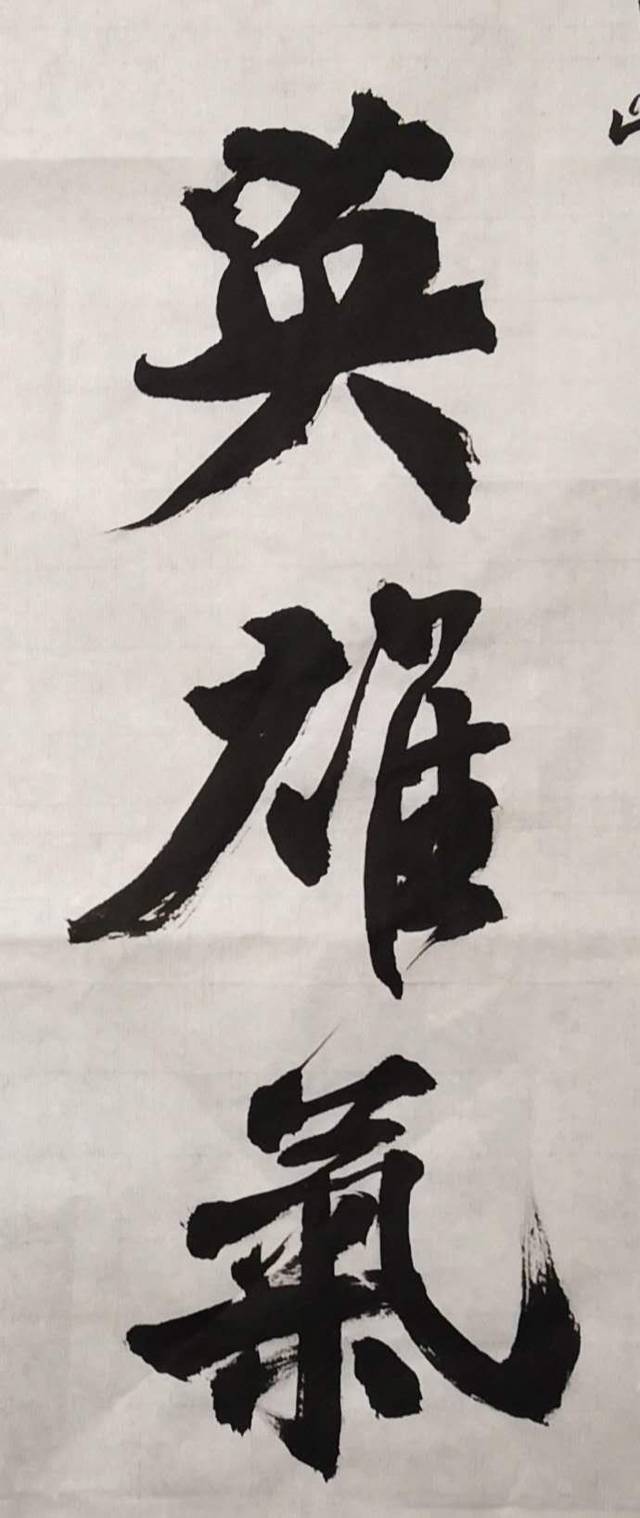 英雄氣